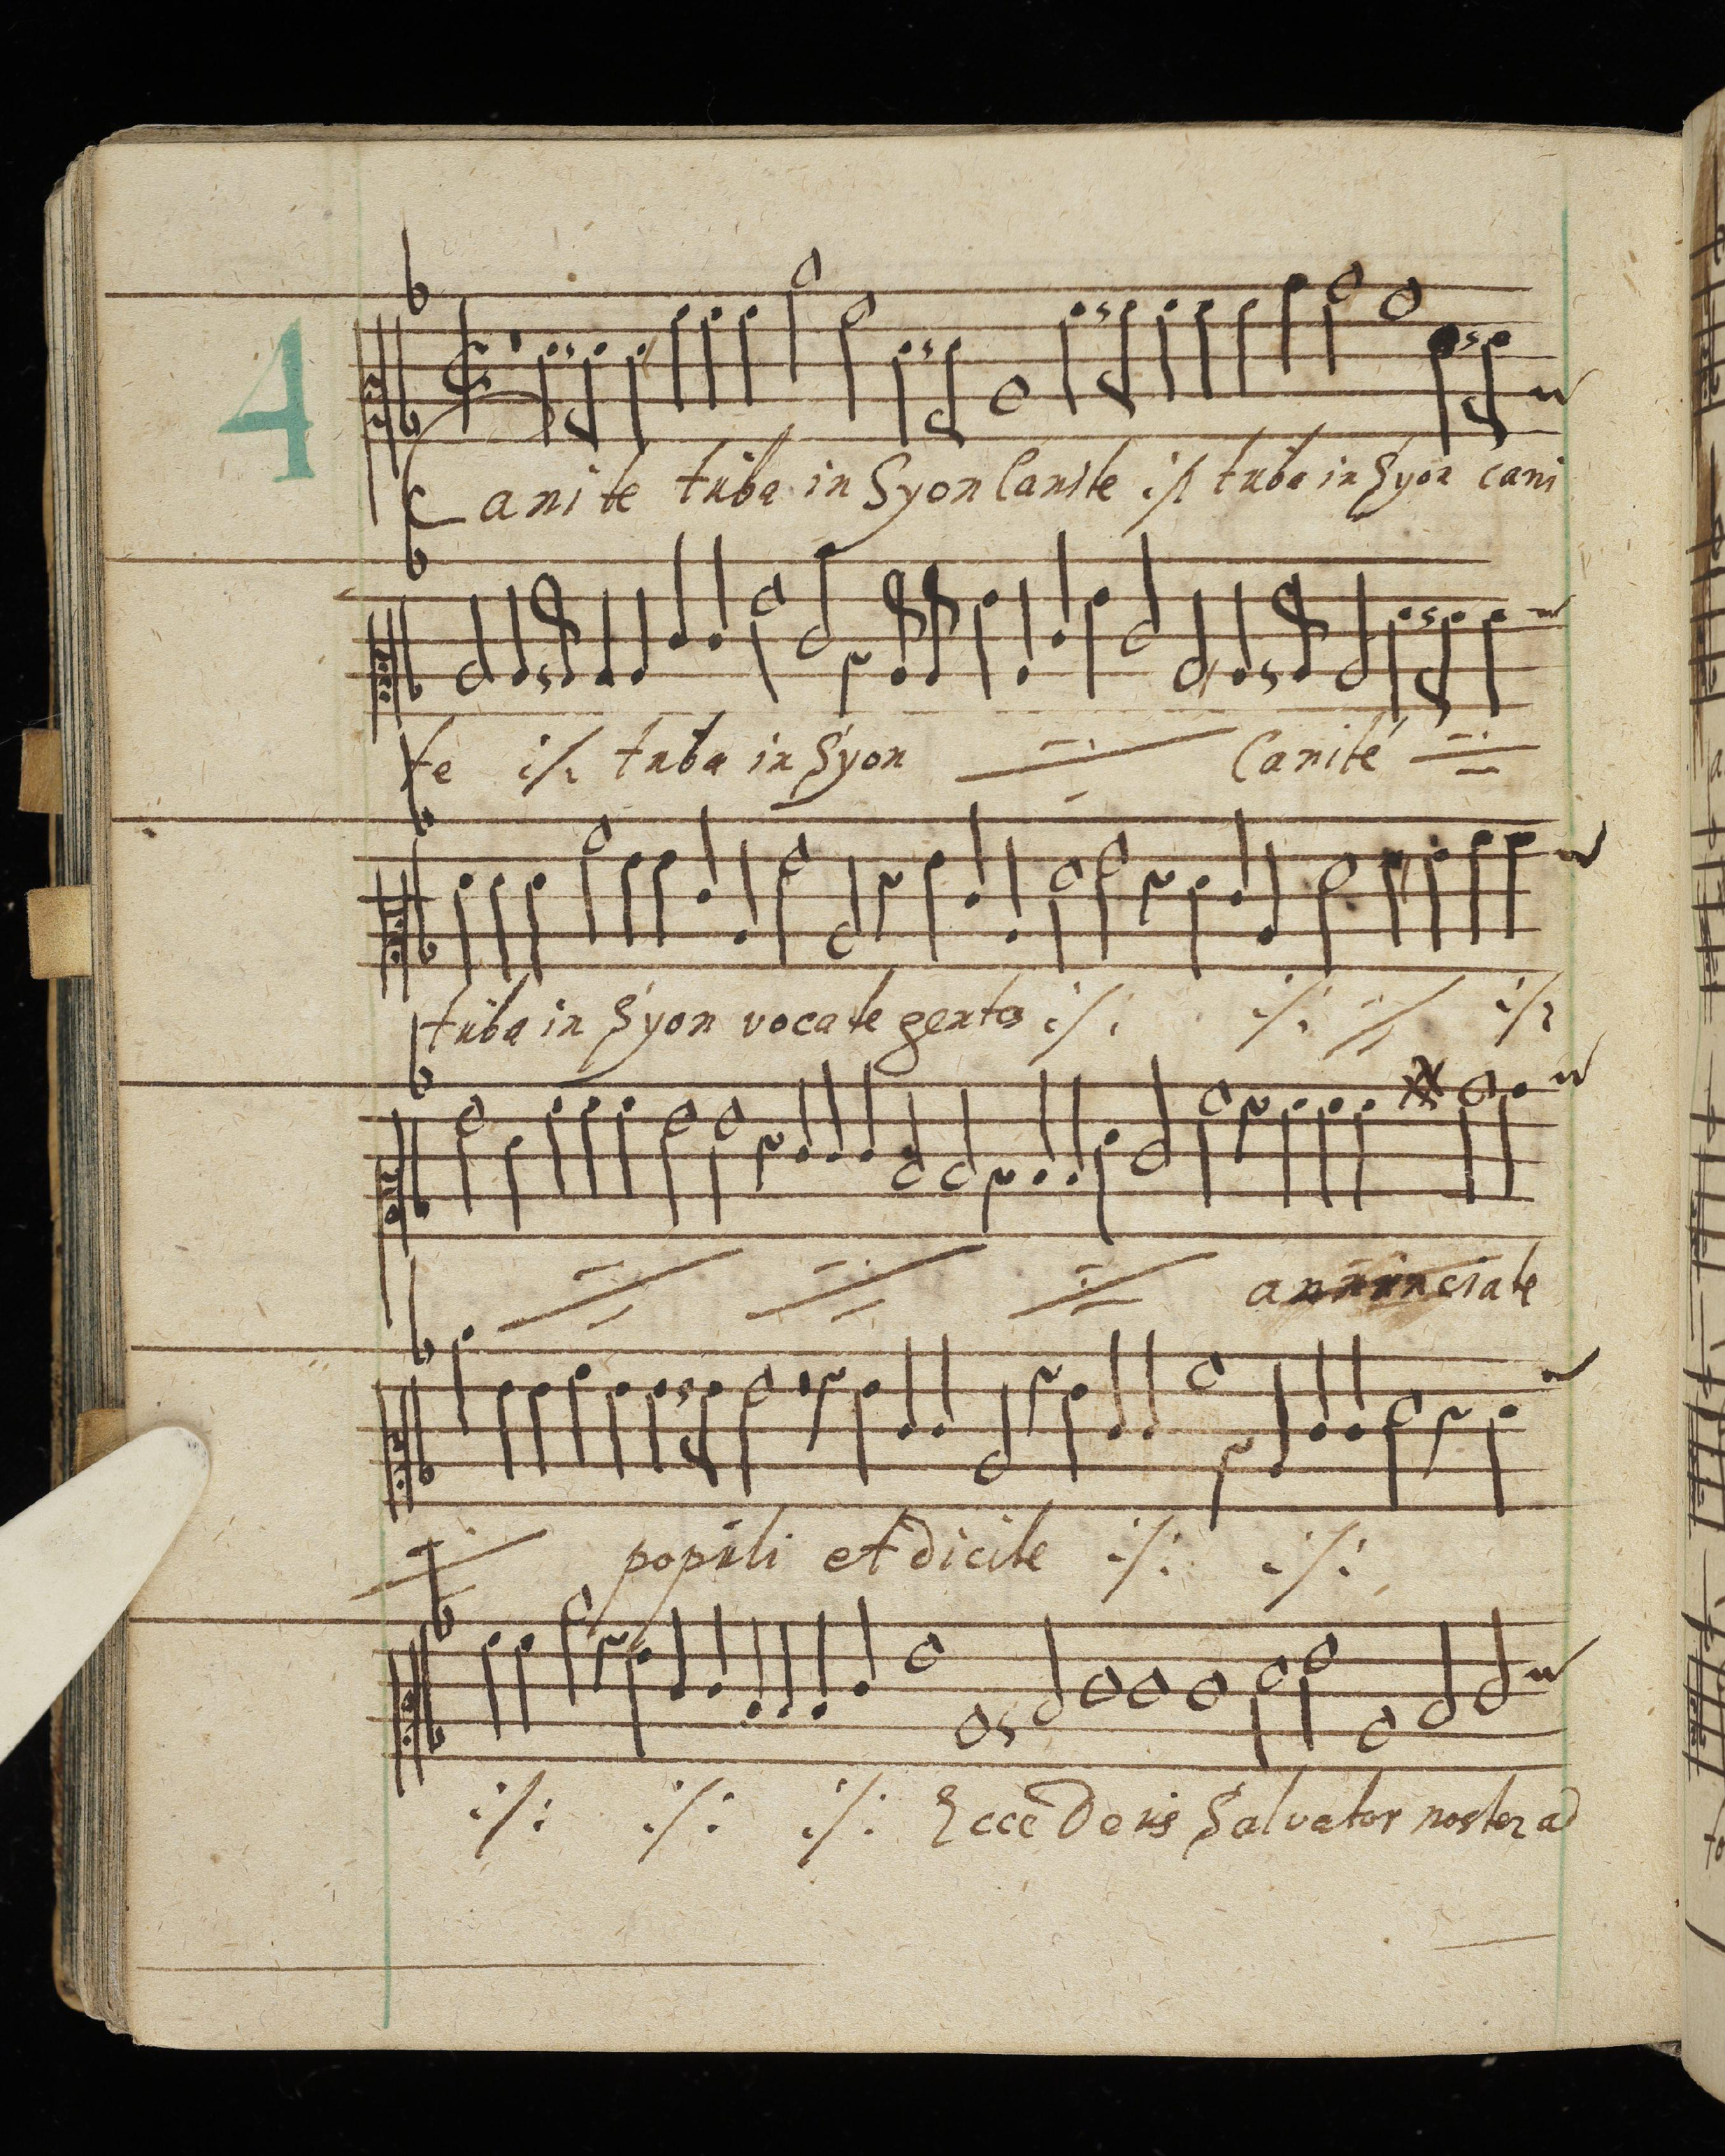 4
Canite tuba in Syon Canite ./. tuba in Syon cani
te ./. tuba in Syon Canite
tuba in Syon vocate gentes ./. ./. ./.
annunciate
populi et dicite ./. ./.
./. ./. ./. Ecce Deus Salvator noster ad